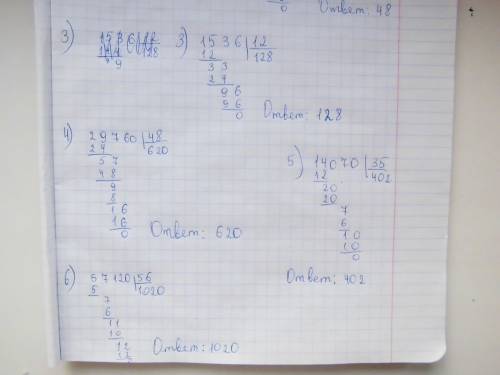 0 Ответ: 48
3) 1536 12 128
144
9
3) 1536 12
12 128
33
24
96
96
0 Ответ: 128
4) 29760 48
24 620
57
48
9
8
16
16
0 Ответ: 620
5) 14070 35
12 402
20
20
7
6
10
10
0
Ответ: 402
6) 57120 56
5 1020
7
6
11
10
12
12
Ответ: 1020